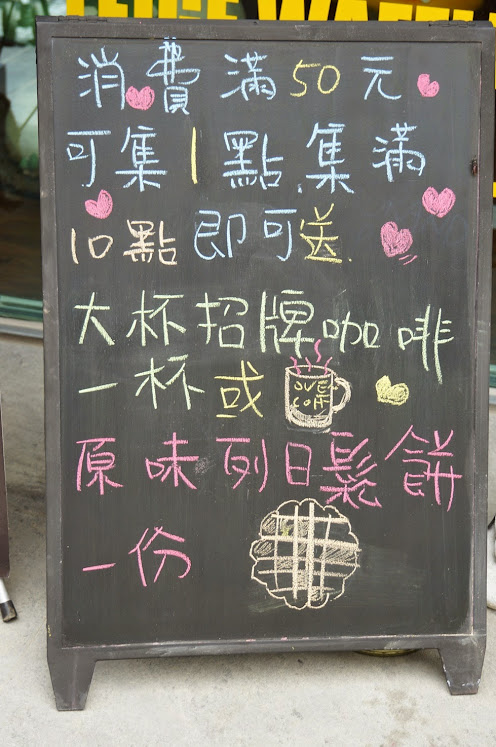 消費滿50元
可集1點.集滿
10點即可送
大杯招牌咖啡
一杯或
原味列日鬆餅
一份